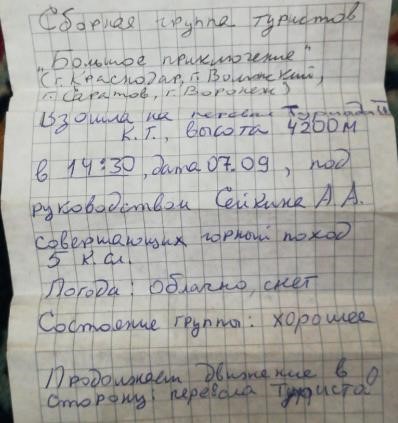 Сборная группа туристов
"Большое приключение"
(г. Краснодар, г. Волжский,
г. Саратов, г. Воронеж)
Взошла на перевал
К.Т., высота 4200м
в 14:30, дата 07.09, под
руководством Сейкина А.А.
совершающих горный поход
5 к.сл.
Погода: Облачно, снег
Состояние группы: хорошее
Продолжаем движение в
сторону: перевала Туриста